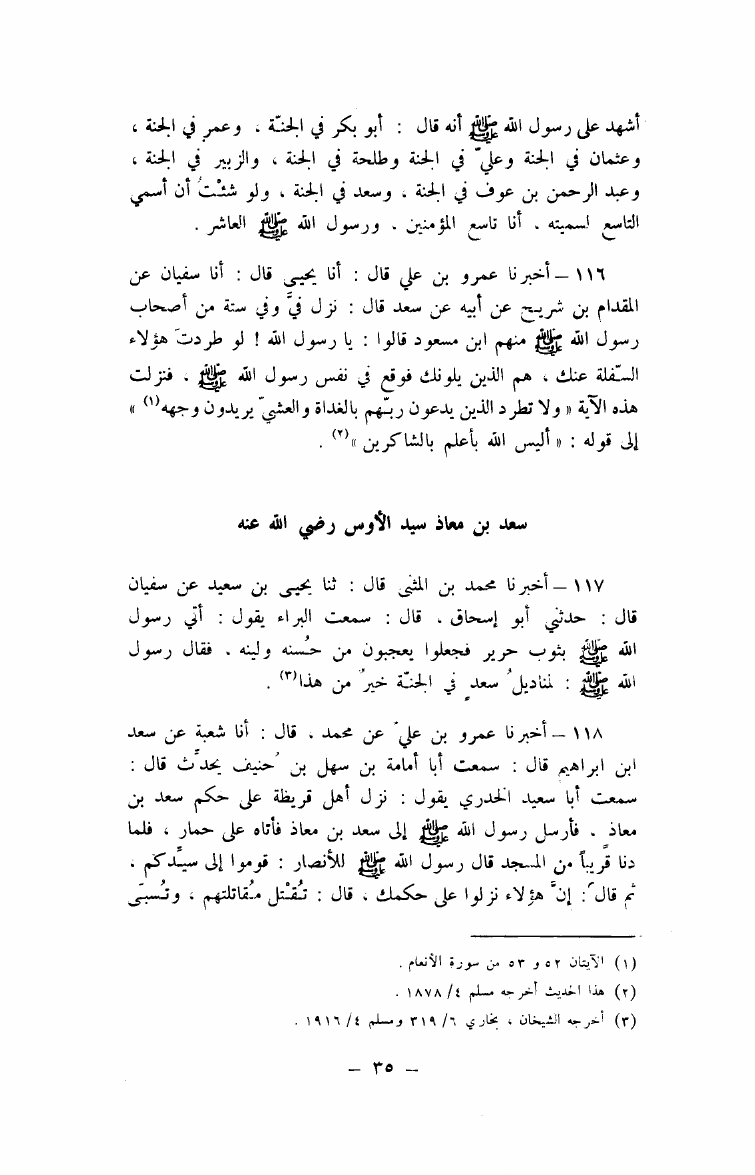 أشهد على رسول الله ﷺ أنه قال : أبو بكر في الجنّة ، وعمر في الجنة ،
وعثمان في الجنة وعليّ في الجنة وطلحة في الجنة ، والزبير في الجنة ،
وعبد الرحمن بن عوف في الجنة ، وسعد في الجنة ، ولو شئْتُ أن أسمي
التاسع لسميته . أنا تاسع المؤمنين . ورسول الله ﷺ العاشر .
١١٦ – أخبرنا عمرو بن علي قال : أنا يحيى قال : أنا سفيان عن
المقدام بن شريح عن أبيه عن سعد قال : نزل فيَّ وفي ستة من أصحاب
رسول الله ﷺ منهم ابن مسعود قالوا : يا رسول الله ! لو طردتَ هؤلاء
السّفلة عنك ، هم الذين يلونك فوقع في نفس رسول الله ﷺ . فنزلت
هذه الآية « ولا تطرد الذين يدعون ربّهم بالغداة والعشيّ يريدون وجهه(١) »
إلى قوله : « أليس الله بأعلم بالشاكرين »(٢) .
سعد بن معاذ سيد الأوس رضي الله عنه
١١٧ – أخبرنا محمد بن المثنى قال : ثنا يحيى بن سعيد عن سفيان
قال : حدثني أبو إسحاق . قال : سمعت البراء يقول : أتي رسول
الله ﷺ بثوب حرير فجعلوا يعجبون من حُسنه ولينه . فقال رسول
الله ﷺ : لمناديلُ سعدٍ في الجنّة خيرُ من هذا(٣) .
١١٨ – أخبرنا عمرو بن عليّ عن محمد . قال : أنا شعبة عن سعد
ابن ابراهيم قال : سمعت أبا أمامة بن سهل بن حُنيف يحدَّث قال :
سمعت أبا سعيد الخدري يقول : نزل أهل قريظة على حكم سعد بن
معاذ . فأرسل رسول الله ﷺ إلى سعد بن معاذ فأتاه على حمار ، فلما
دنا قريباً من المسجد قال رسول الله ﷺ للأنصار : قوموا إلى سيّدكم .
ثم قال : إنَّ هؤلاء نزلوا على حكمك ، قال : تُقْتل مُقاتلتهم ، وتُسبّى
(١) الآيتان ٥٢ و ٥٣ من سورة الأنعام .
(٢) هذا الحديث أخرجه مسلم ٤/ ١٨٧٨ .
(٣) أخرجه الشيخان ، بخاري ٦/ ٣١٩ ومسلم ٤/ ١٩١٦ .
– ٣٥ –